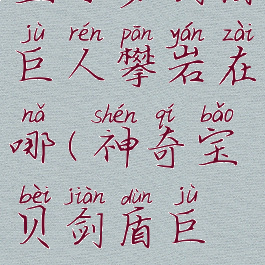 jù rén pān yán zài
巨人攀岩在
nǎ shén qí bǎo
哪(神奇宝
bèi jiàn dùn jù
贝剑盾巨